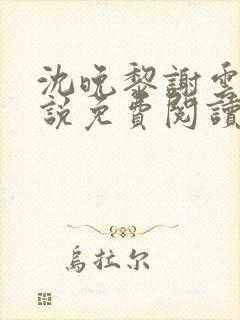 沈晚黎謝雲
說免費閱讀
烏拉尔